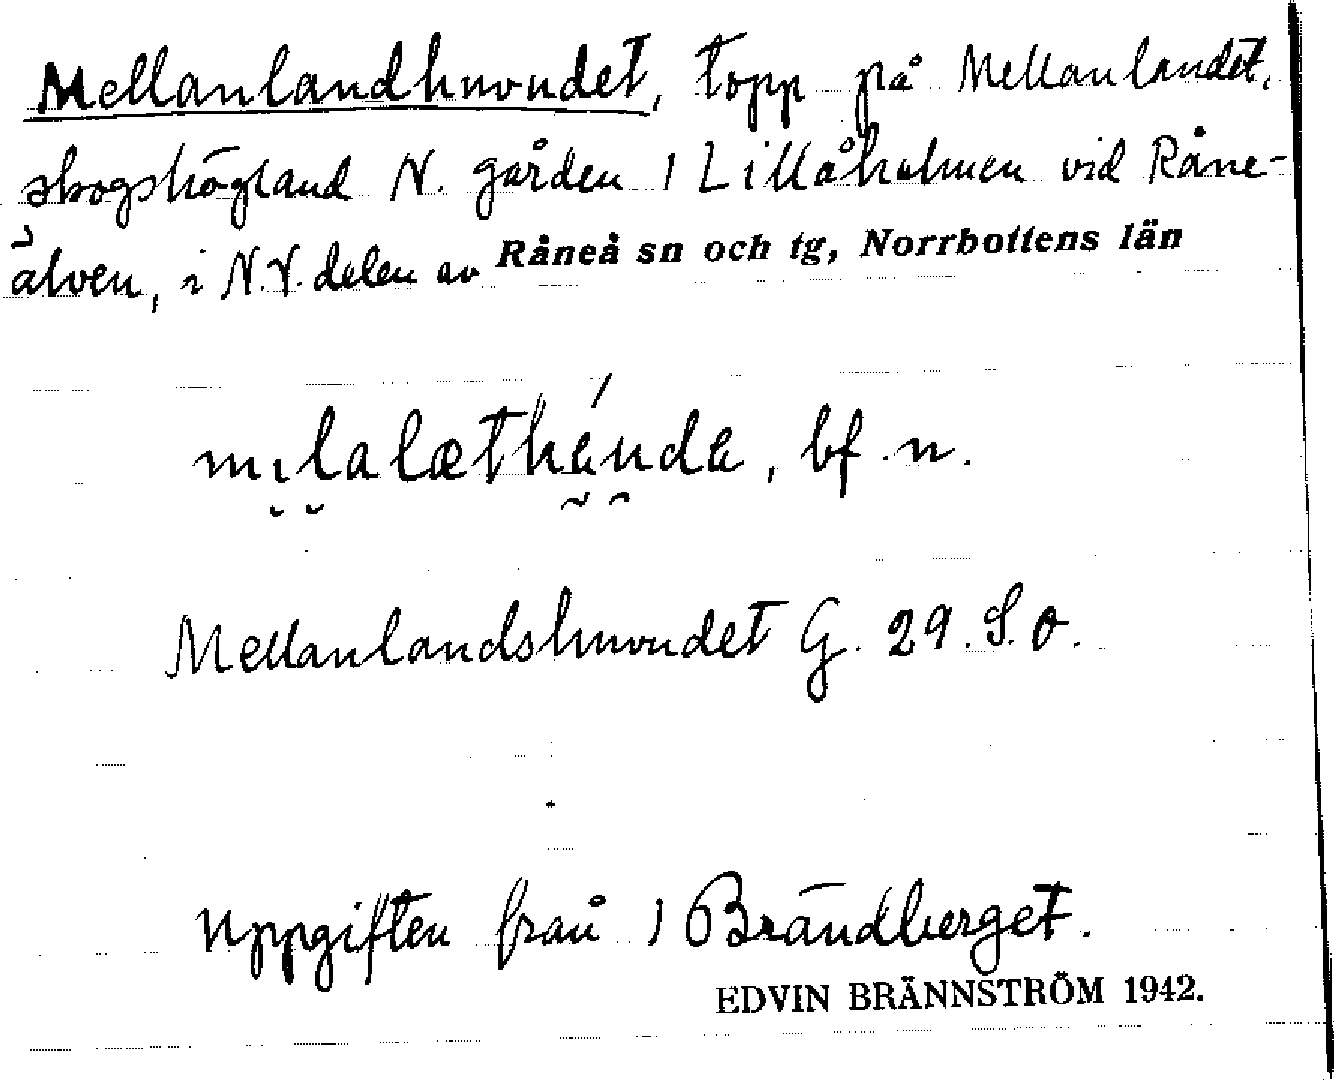 Mellanlandhuvudet, topp på Mellanlandet,
skogshögland N. gården 1 Lillåholmen vid Råne-
älven, i N.V. delen av Råneå sn och tg, Norrbottens län
bf. n.
Mellanlandshuvudet G. 29. S.O.
Uppgiften från 1 Brändberget.
EDVIN BRÄNNSTRÖM 1942.